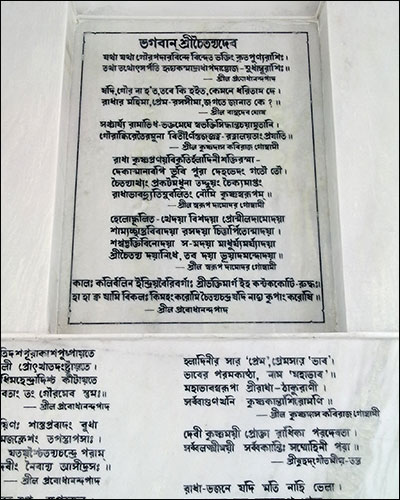 ভগবান্ শ্রীচৈতন্যদেব
যথা যথা গৌরপদারবিন্দে বিন্দেত ভক্তিং কৃতপুণ্যরাশিঃ।
তথা তথোৎসর্পতি হৃদ্যকস্মাদ্রাধাপদাম্ভোজ-সুধাম্বুরাশিঃ॥
— শ্রীল প্রবোধানন্দপাদ
যদি, গৌর না হ'ত, তবে কি হইত, কেমনে ধরিতাম দে।
রাধার মহিমা, প্রেম-রসসীমা, জগতে জানাত কে?॥
— শ্রীল বাসুদেব ঘোষ
সঞ্চার্য্য রামাভিধ-ভক্তমেঘে স্বভক্তিসিদ্ধান্তচয়ামৃতানি।
গৌরাব্ধিরেতৈরমুনা বিতীর্ণৈস্তজ্জ্ঞত্ব-রত্নালয়তাং প্রযাতি॥
— শ্রীল কৃষ্ণদাস কবিরাজ গোস্বামী
রাধা কৃষ্ণপ্রণয়বিকৃতির্হ্লাদিনীশক্তিরস্মা-
দেকাত্মানাবপি ভুবি পুরা দেহভেদং গতৌ তৌ।
চৈতন্যাখ্যং প্রকটমধুনা তদ্দ্বয়ং চৈক্যমাপ্তং
রাধাভাবদ্যুতিসুবলিতং নৌমি কৃষ্ণস্বরূপম্॥
— শ্রীল স্বরূপ দামোদর গোস্বামী
হেলোদ্ধূলিত-খেদয়া বিশদয়া প্রোন্মীলদামোদয়া
শাম্যচ্ছাস্ত্রবিবাদয়া রসদয়া চিত্তার্পিতোন্মাদয়া।
শশ্বদ্ভক্তিবিনোদয়া স-মদয়া মাধুর্য্যমর্য্যাদয়া
শ্রীচৈতন্য দয়ানিধে, তব দয়া ভূয়াদমন্দোদয়া॥
— শ্রীল স্বরূপ দামোদর গোস্বামী
কালঃ কলির্বলিন ইন্দ্রিয়বৈরিবর্গাঃ শ্রীভক্তিমার্গ ইহ কন্টককোটি-রুদ্ধঃ।
হা হা ক্ব যামি বিকলঃ কিমহং করোমি চৈতন্যচন্দ্র যদি নাদ্য কৃপাং করোষি॥
— শ্রীল প্রবোধানন্দপাদ
ত্রিদশপুরাকাশপুষ্পায়তে
— শ্রীল প্রবোধানন্দপাদ
হ্লাদিনীর সার 'প্রেম', প্রেমসার 'ভাব'।
ভাবের পরমকাষ্ঠা, নাম 'মহাভাব'॥
মহাভাবস্বরূপা শ্রীরাধা-ঠাকুরাণী।
সর্ব্বগুণখনি কৃষ্ণকান্তাশিরোমণি॥
— শ্রীল কৃষ্ণদাস কবিরাজ গোস্বামী
দেবী কৃষ্ণময়ী প্রোক্তা রাধিকা পরদেবতা।
সর্ব্বলক্ষ্মীময়ী সর্ব্বকান্তিঃ সম্মোহিনী পরা॥
— শ্রীবৃহদ্গৌতমীয়-তন্ত্র
রাধা-ভজনে যদি মতি নাহি ভেলা।